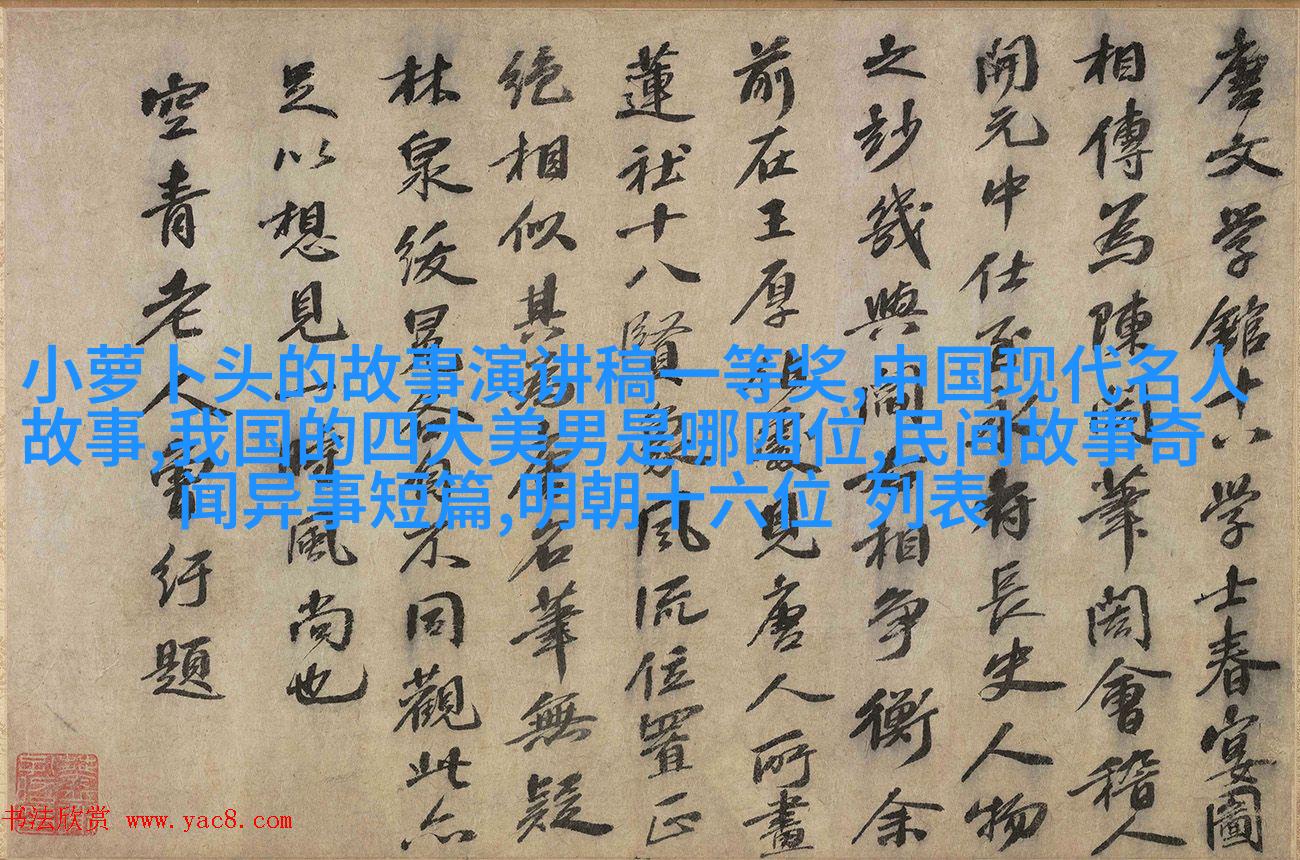 唐文学館十八学士春宴圖
相傳為陳閎筆閎會稽人
開元中仕至 府長史人物
之妙幾與閻 相爭衡余
前在王厚 見唐人所畫
蓮社十八賢 風流位置正
絶相似其為 名筆無疑
林泉綬冕 不同觀此亦
足以想見一時風尚也
空青老人曾紆題
小萝卜头的故事演讲稿一等奖,中国现代名人
故事,我国的四大美男是哪四位,民间故事奇
闻异事短篇,明朝十六位 列表
书法欣赏 www.yac8.com